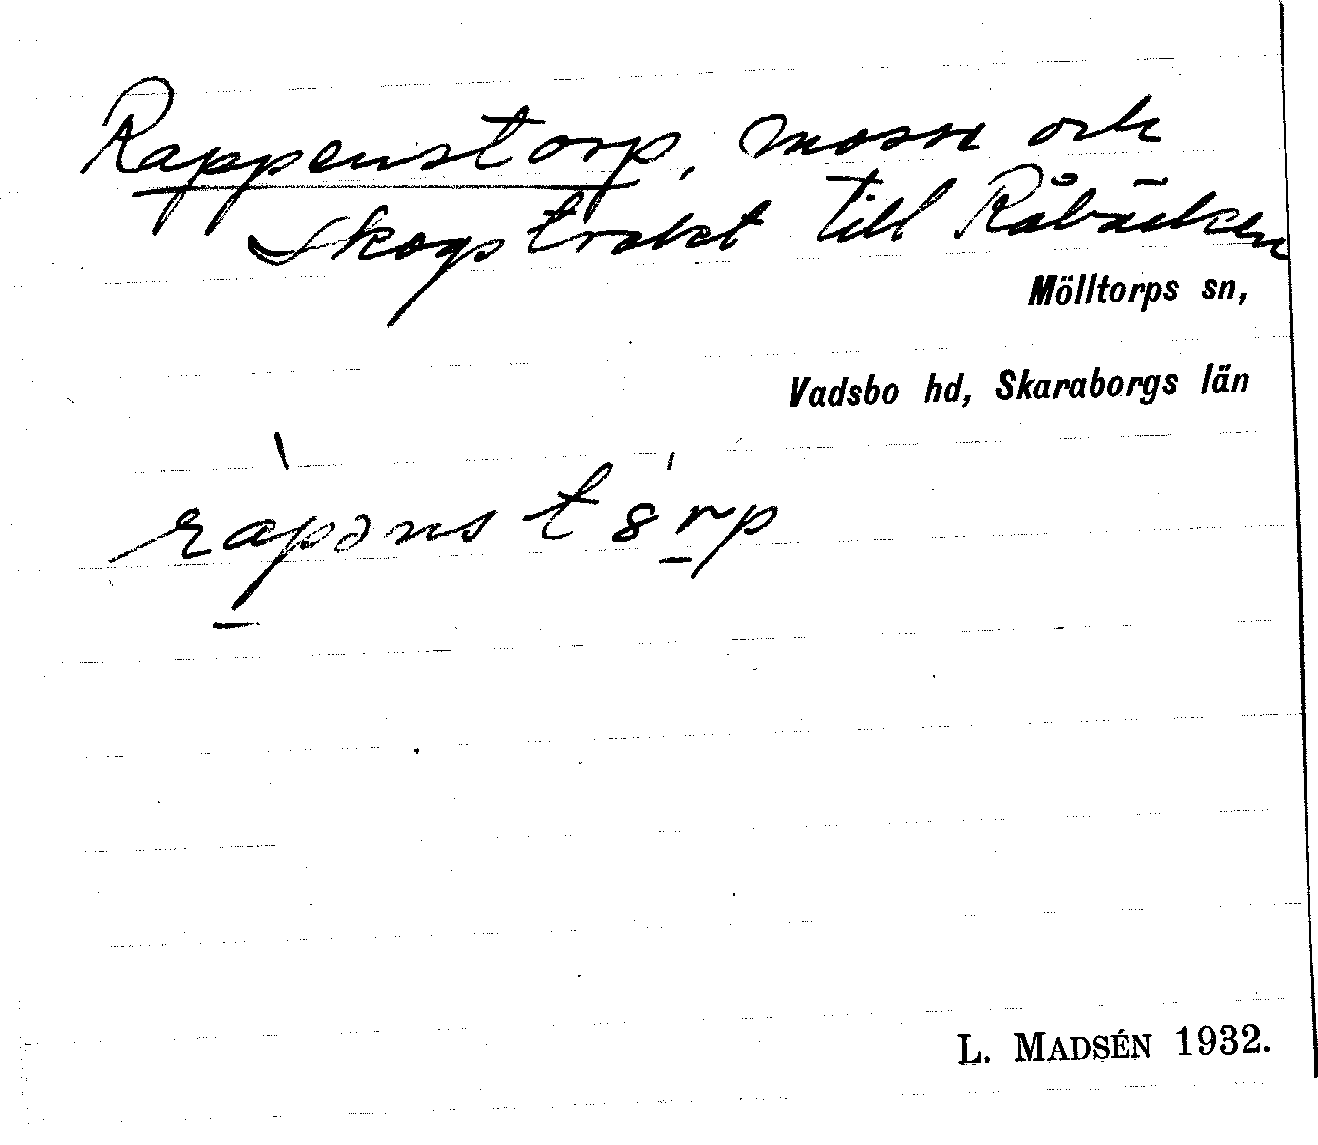 Rappenstorp, mosse och
skogstrakt till Råbäcken
Mölltorps sn,
Vadsbo hd, Skaraborgs län
ràpənstórp
L. MADSÉN 1932.